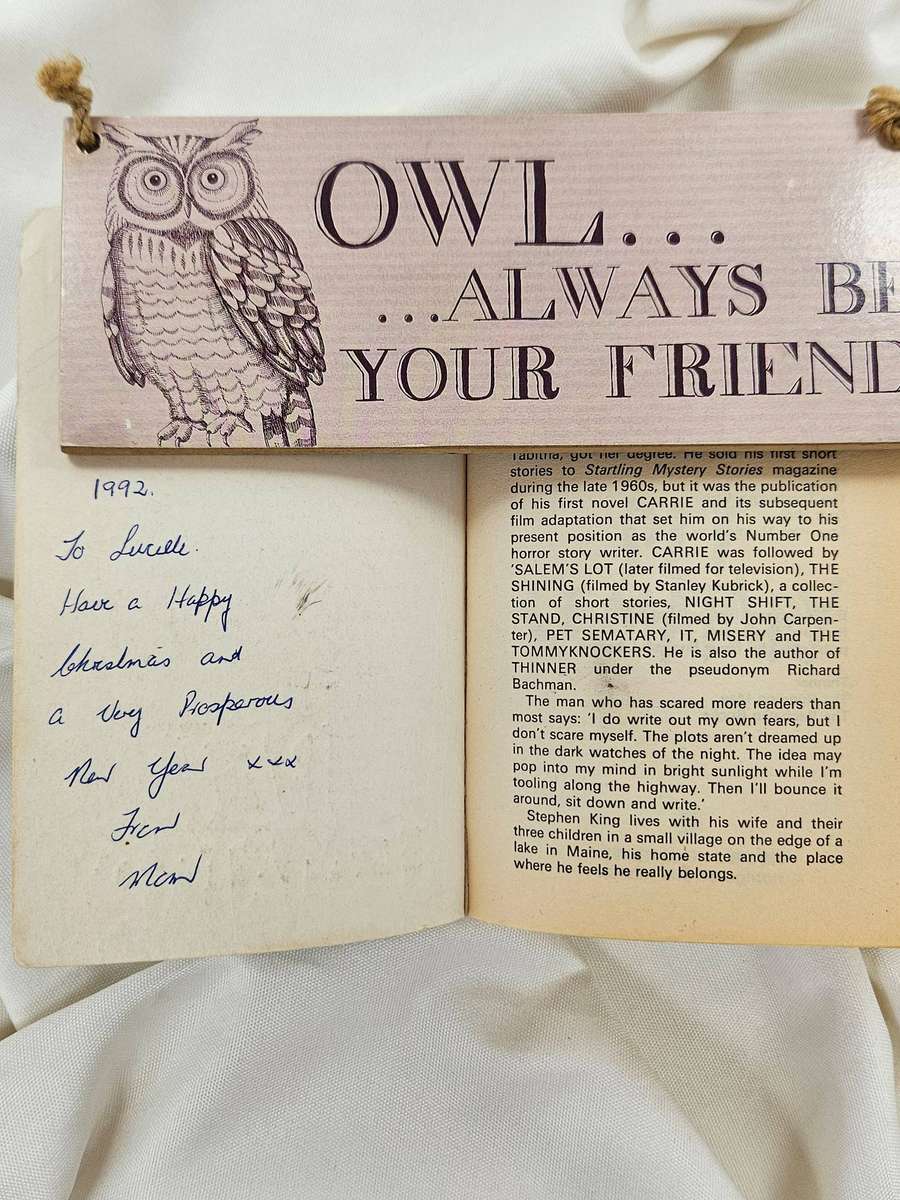 OWL...
...ALWAYS BE
YOUR FRIEND
1992.
To Lucille.
Have a Happy
Christmas and
a Very Prosperous
New Year xxx
From
Mom
Tabitha, got her degree. He sold his first short
stories to Startling Mystery Stories magazine
during the late 1960s, but it was the publication
of his first novel CARRIE and its subsequent
film adaptation that set him on his way to his
present position as the world's Number One
horror story writer. CARRIE was followed by
'SALEM'S LOT (later filmed for television), THE
SHINING (filmed by Stanley Kubrick), a collec-
tion of short stories, NIGHT SHIFT, THE
STAND, CHRISTINE (filmed by John Carpen-
ter), PET SEMATARY, IT, MISERY and THE
TOMMYKNOCKERS. He is also the author of
THINNER under the pseudonym Richard
Bachman.
The man who has scared more readers than
most says: 'I do write out my own fears, but I
don't scare myself. The plots aren't dreamed up
in the dark watches of the night. The idea may
pop into my mind in bright sunlight while I'm
tooling along the highway. Then I'll bounce it
around, sit down and write.'
Stephen King lives with his wife and their
three children in a small village on the edge of a
lake in Maine, his home state and the place
where he feels he really belongs.